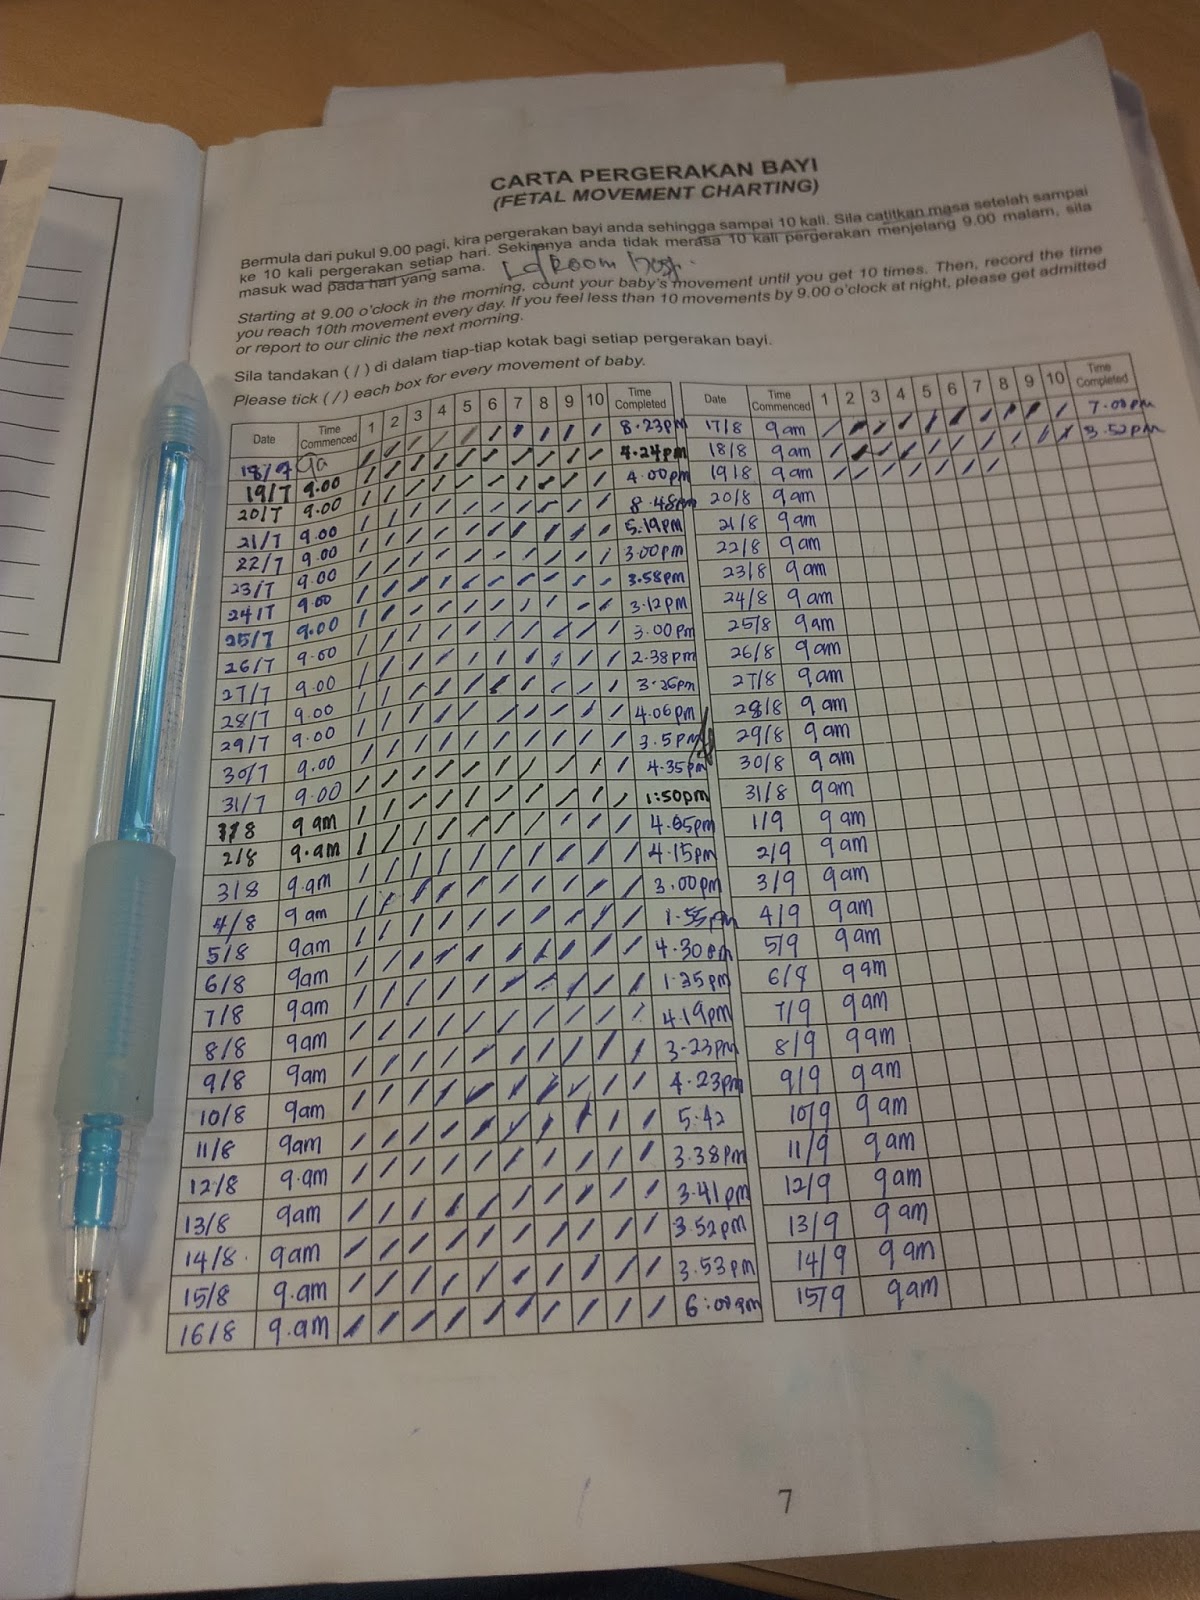 CARTA PERGERAKAN BAYI
(FETAL MOVEMENT CHARTING)
Bermula dari pukul 9.00 pagi, kira pergerakan bayi anda sehingga sampai 10 kali. Sila catitkan masa setelah sampai
ke 10 kali pergerakan setiap hari. Sekiranya anda tidak merasa 10 kali pergerakan menjelang 9.00 malam, sila
masuk wad pada hari yang sama. Room
Starting at 9.00 o'clock in the morning, count your baby's movement until you get 10 times. Then, record the time
you reach 10th movement every day. If you feel less than 10 movements by 9.00 o'clock at night, please get admitted
or report to our clinic the next morning.
Sila tandakan ( / ) di dalam tiap-tiap kotak bagi setiap pergerakan bayi.
Please tick ( / ) each box for every movement of baby.
Date Time Commenced 1 2 3 4 5 6 7 8 9 10 Time Completed
18/7 9a / / / / / / / / / / 8.23pm
19/7 9.00 / / / / / / / / / / 4.24pm
20/7 9.00 / / / / / / / / / / 4.00pm
21/7 9.00 / / / / / / / / / / 8.48pm
22/7 9.00 / / / / / / / / / / 5.19pm
23/7 9.00 / / / / / / / / / / 3.00pm
24/7 9.00 / / / / / / / / / / 3.58pm
25/7 9.00 / / / / / / / / / / 3.12pm
26/7 9.00 / / / / / / / / / / 3.00pm
27/7 9.00 / / / / / / / / / / 2.38pm
28/7 9.00 / / / / / / / / / / 3.26pm
29/7 9.00 / / / / / / / / / / 4.06pm
30/7 9.00 / / / / / / / / / / 3.5pm
31/7 9.00 / / / / / / / / / / 4.35pm
1/8 9 am / / / / / / / / / / 1:50pm
2/8 9.am / / / / / / / / / / 4.05pm
3/8 9.am / / / / / / / / / / 4.15pm
4/8 9 am / / / / / / / / / / 3.00pm
5/8 9am / / / / / / / / / / 1.55pm
6/8 9am / / / / / / / / / / 4.30pm
7/8 9am / / / / / / / / / / 1.35pm
8/8 9am / / / / / / / / / / 4.19pm
9/8 9am / / / / / / / / / / 3.23pm
10/8 9am / / / / / / / / / / 4.23pm
11/8 9am / / / / / / / / / / 5.42
12/8 9.am / / / / / / / / / / 3.38pm
13/8 9am / / / / / / / / / / 3.41pm
14/8 9am / / / / / / / / / / 3.52pm
15/8 9.am / / / / / / / / / / 3.53pm
16/8 9.am / / / / / / / / / / 6:00pm
Date Time Commenced 1 2 3 4 5 6 7 8 9 10 Time Completed
17/8 9am / / / / / / / / / / 7.00pm
18/8 9am / / / / / / / / / / 3.52pm
19/8 9am / / / / / / /
20/8 9am
21/8 9am
22/8 9am
23/8 9am
24/8 9am
25/8 9am
26/8 9am
27/8 9am
28/8 9am
29/8 9am
30/8 9am
31/8 9am
1/9 9am
2/9 9am
3/9 9am
4/9 9am
5/9 9am
6/9 9am
7/9 9am
8/9 9am
9/9 9am
10/9 9am
11/9 9am
12/9 9am
13/9 9am
14/9 9am
15/9 9am
7